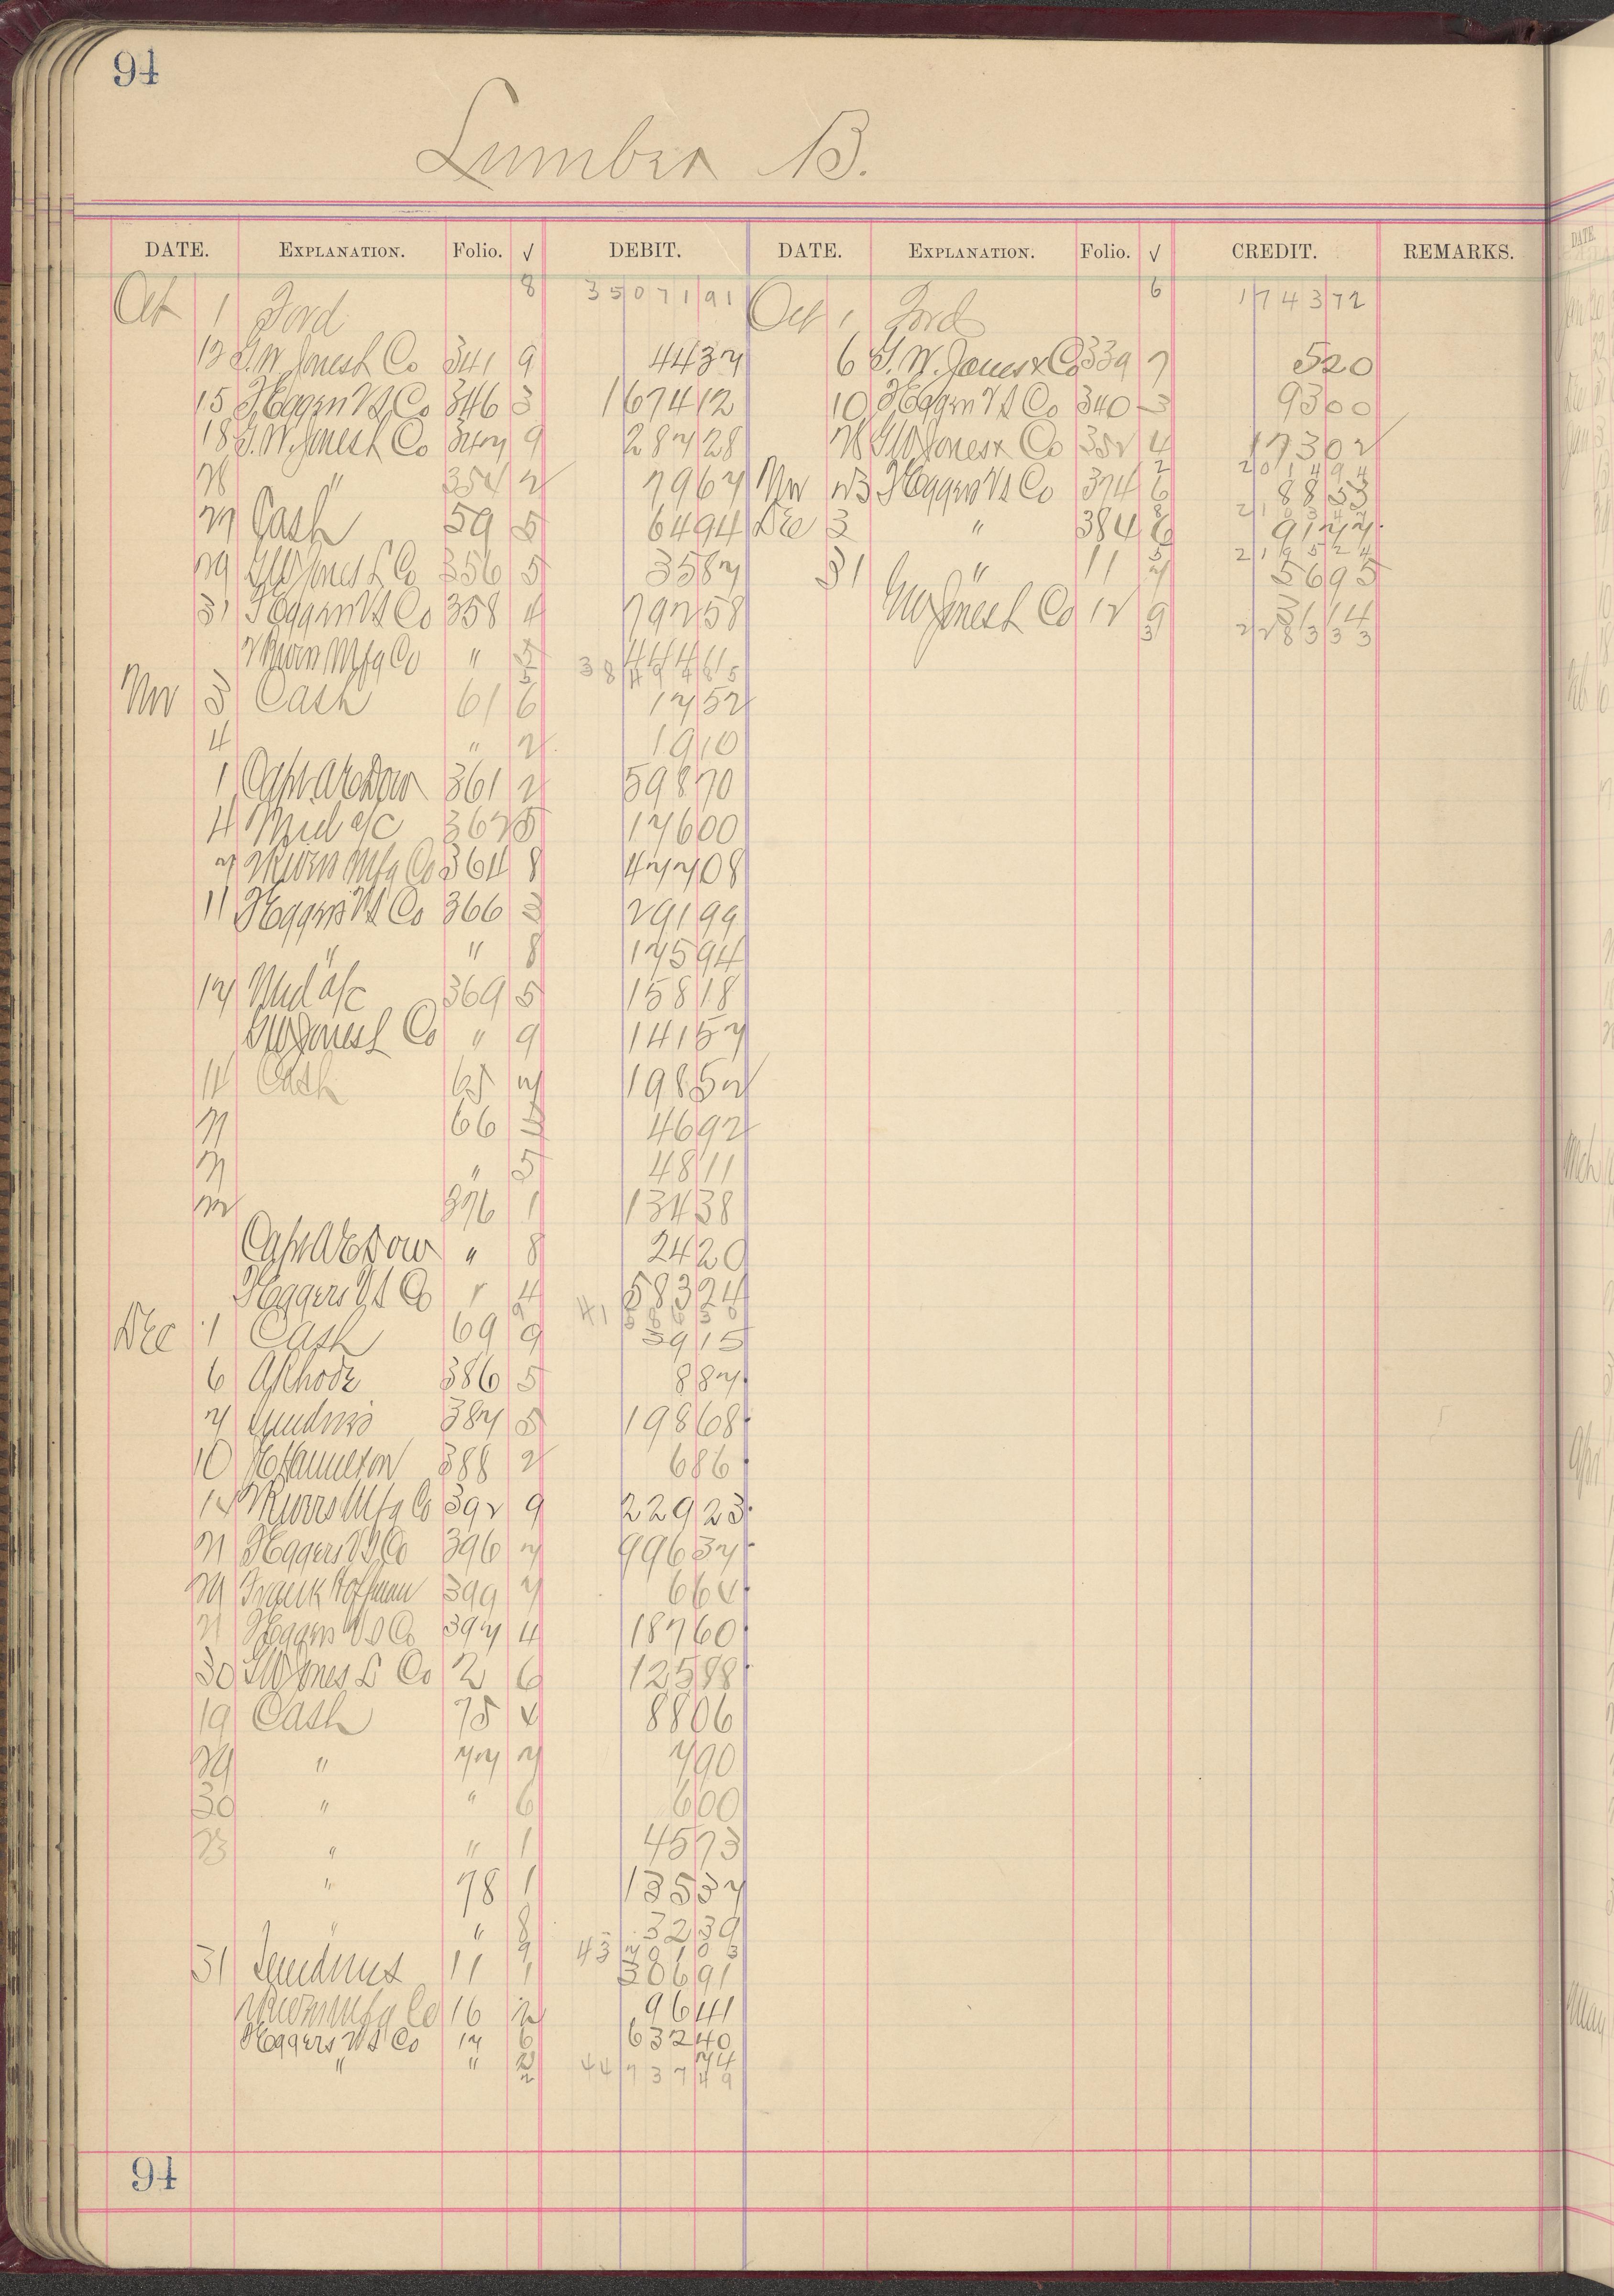 94
Lumber B.
DATE. EXPLANATION. Folio. √ DEBIT. DATE. EXPLANATION. Folio. √ CREDIT. REMARKS.
Oct 1 Ford 8 35071 91 Oct 1 Ford 6 1743 72
12 G.W. Jones L Co 341 9 44 37 6 G.W. Jones L Co 339 7 5 20
15 Heggers V S Co 346 3 1674 12 10 Heggers V S Co 340 3 93 00
18 G.W. Jones L Co 347 9 287 28 28 GW Jones L Co 352 4 173 02
28 " 354 2 79 67 2 2014 94
Nov 23 Heggers V S Co 374 6 88 53
27 Cash 59 5 64 94 8 2103 47
Dec 3 " 384 6 91 77
29 GW Jones L Co 356 5 35 87 5 2195 24
31 " 11 7 56 95
31 Heggers V S Co 358 4 792 58 GW Jones L Co 12 9 31 14
3 2283 33
Mfg Co " 5 444 61
5 38494 85
Nov 3 Cash 61 6 17 52
4 " 2 19 10
1 Capt A E Dow 361 2 598 70
4 Mid a/c 362 5 176 00
7 Mfg Co 364 8 477 08
11 Heggers V S Co 366 3 291 99
" " 8 175 94
17 Mid a/c 369 5 158 18
GW Jones L Co " 9 141 57
11 Cash 65 7 198 52
21 66 3 46 92
21 " 5 48 11
22 376 1 134 38
Capt A E Dow " 8 24 20
Heggers V S Co " 4 583 24
9 41586 30
Dec 1 Cash 69 9 39 15
6 A Rhode 386 5 8 87
7 Sundries 387 5 198 68
10 Hamilton 388 2 6 86
14 Mfg Co 392 9 229 23
21 Heggers V S Co 396 7 996 37
29 Frank Hoffman 399 7 6 64
21 Heggers V S Co 397 4 187 60
30 GW Jones L Co 2 6 125 88
19 Cash 75 4 88 06
29 " 77 7 7 90
30 " " 6 6 00
23 " " 1 45 73
" 78 1 135 37
" " 8 32 39
9 43701 03
31 Sundries 11 1 306 91
Mfg Co 16 2 96 41
Heggers V S Co 17 6 632 40
" " 2 74
2 44737 49
94